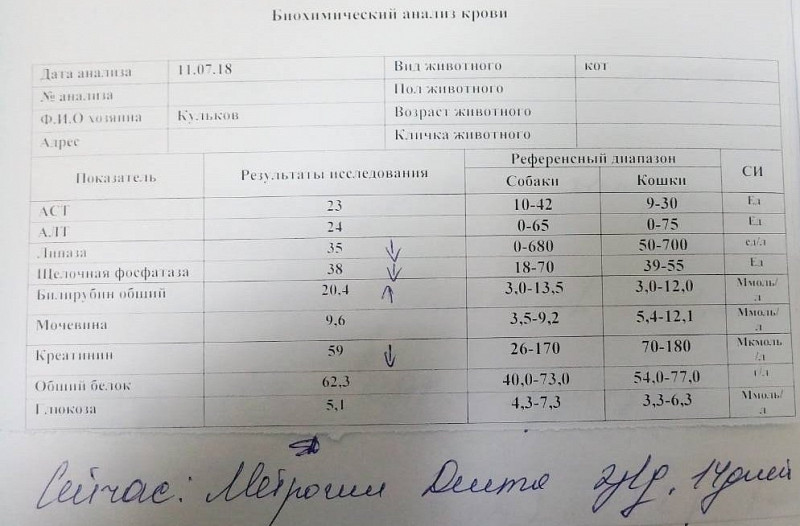 Биохимический анализ крови
Дата анализа 11.07.18 Вид животного кот
№ анализа Пол животного
Ф.И.О хозяина Кульков Возраст животного
Адрес Кличка животного
Показатель Результаты исследования Референсный диапазон СИ
Собаки Кошки
АСТ 23 10-42 9-30 Ед
АЛТ 24 0-65 0-75 Ед
Липаза 35 ↓ 0-680 50-700 ед/л
Щелочная фосфатаза 38 ↓ 18-70 39-55 Ед
Билирубин общий 20,4 ↑ 3,0-13,5 3,0-12,0 Ммоль/л
Мочевина 9,6 3,5-9,2 5,4-12,1 Ммоль/л
Креатинин 59 ↓ 26-170 70-180 Мкмоль/л
Общий белок 62,3 40,0-73,0 54,0-77,0 г/л
Глюкоза 5,1 4,3-7,3 3,3-6,3 Ммоль/л
Сейчас: Метрогил Дента 14 дней